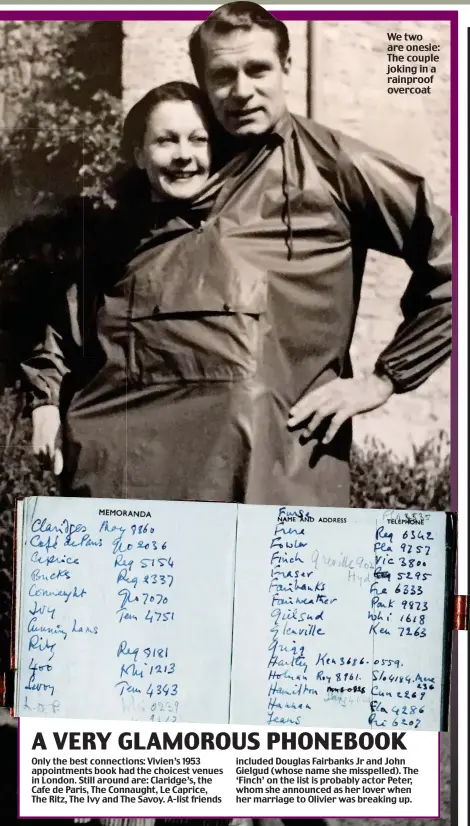 We two
are onesie:
The couple
joking in a
rainproof
overcoat
MEMORANDA
Claridges May 8860
Café de Paris Gro 2036
Caprice Reg 5154
Bucks Reg 2337
Connaught Gro 7070
Ivy Tem 4751
Cunninghams
Ritz Reg 8181
400 Whi 1213
Savoy Tem 4343
NAME AND ADDRESS TELEPHONE
Furse
Frere Reg 6342
Fowler Fla 9757
Finch Vic 3800
Fraser 5295
Fairbanks 6333
Fairweather Park 9973
Guilsud Whi 1618
Glenville Ken 7263
Hartley Ken 3686. 0559.
Holman Roy 8961.
Hamilton Cun 2269
Hannen Fla 4286
Jeans 6207
A VERY GLAMOROUS PHONEBOOK
Only the best connections: Vivien's 1953
appointments book had the choicest venues
in London. Still around are: Claridge's, the
Cafe de Paris, The Connaught, Le Caprice,
The Ritz, The Ivy and The Savoy. A-list friends
included Douglas Fairbanks Jr and John
Gielgud (whose name she misspelled). The
'Finch' on the list is probably actor Peter,
whom she announced as her lover when
her marriage to Olivier was breaking up.